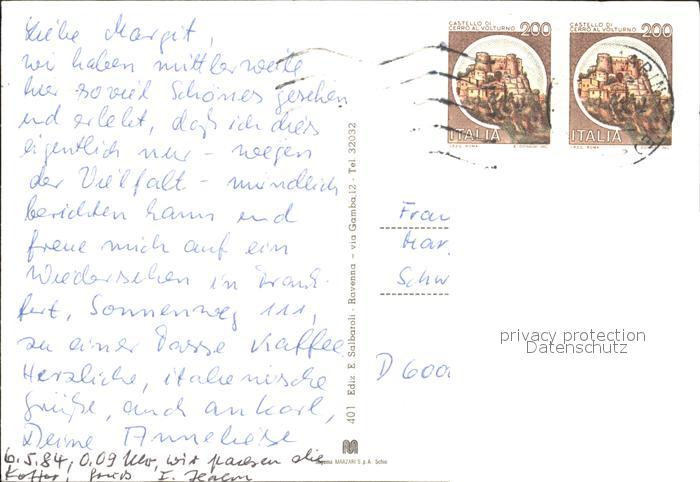 Liebe Margit,
wir haben mittlerweile
hier soviel Schönes gesehen
und erlebt, daß ich dies
eigentlich nur – wegen
der Vielfalt – mündlich
berichten kann und
freue mich auf ein
Wiedersehen in Frank-
furt, Sonnenweg 111,
zu einer Tasse Kaffee
Herzliche, italienische
Grüße, auch an Karl,
Deine Anneliese
6.5.84, 0.09 Uhr, wir packen die
Koffer, Gruß
401 Ediz. E. Salbaroli - Ravenna - via Gamba,12 - Tel 32032
CASTELLO DI
CERRO AL VOLTURNO 200
ITALIA
I.P.Z.S. ROMA
CASTELLO DI
CERRO AL VOLTURNO 200
ITALIA
I.P.Z.S. ROMA
Frau
Mar
Schw
D 600
privacy protection
Datenschutz
MARZARI S.p.A. Schio